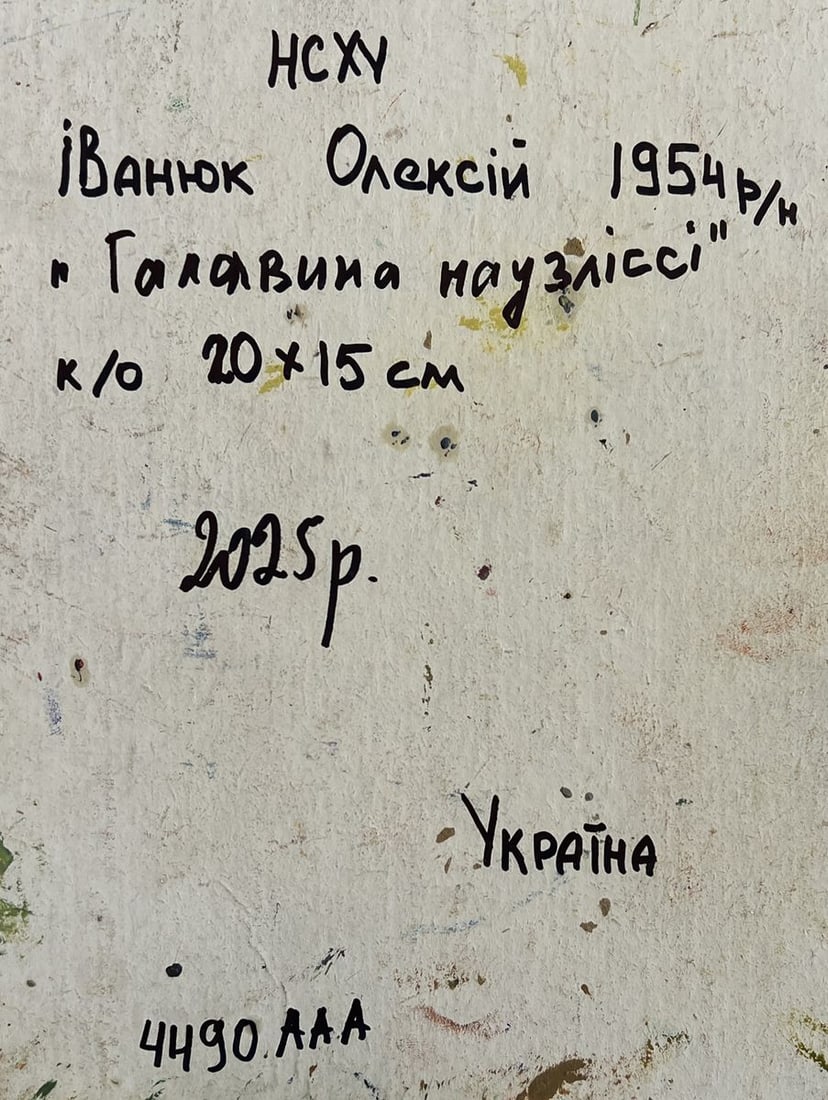 НСХУ
Іванюк Олексій 1954 р/н
"Галявина наузліссі"
к/о 20×15 см
2025р.
Україна
4490.ААА